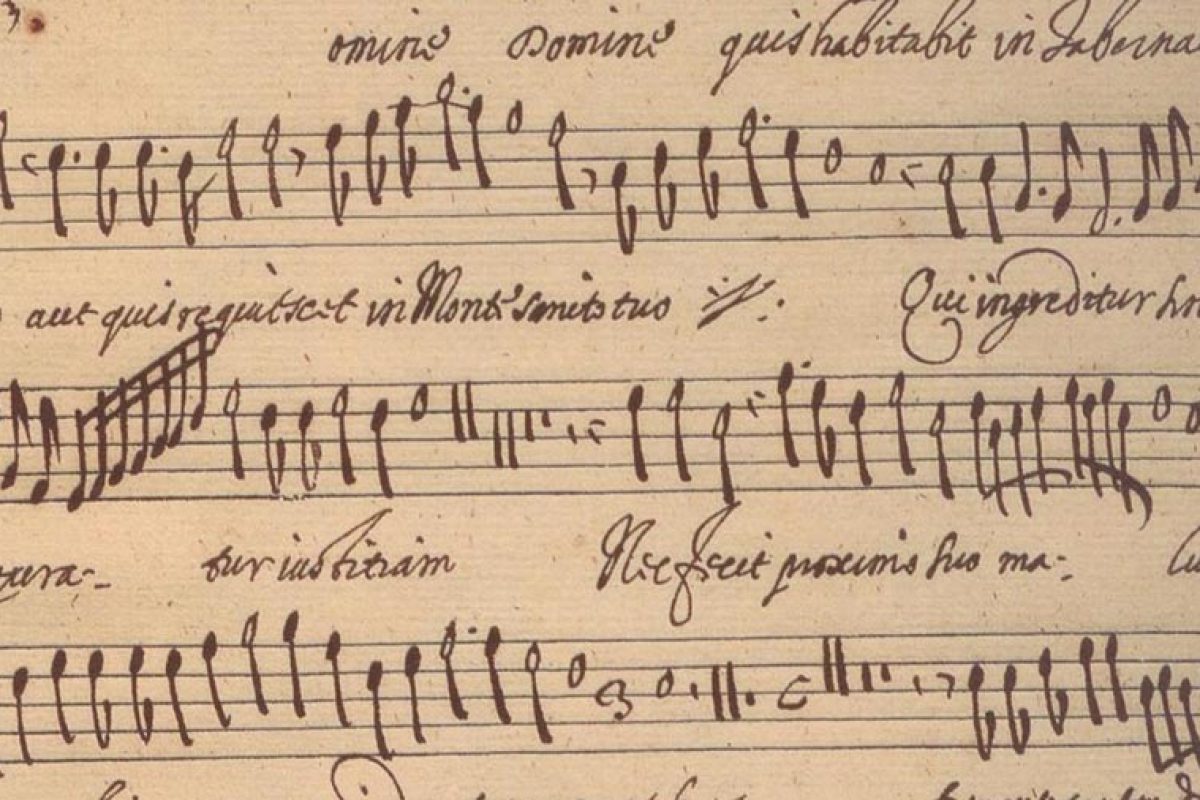 omine Domine quis habitabit in Taberna
aut quis requiescet in Monte sancto tuo
Qui ingreditur sin
tur iustitiam Nec fecit proximo suo ma-